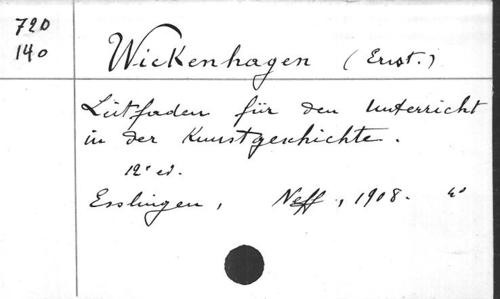 720
140
Wickenhagen (Ernst.)
Leitfaden für den Unterricht
in der Kunstgeschichte.
12e ed.
Esslingen, Neff, 1908. 4o